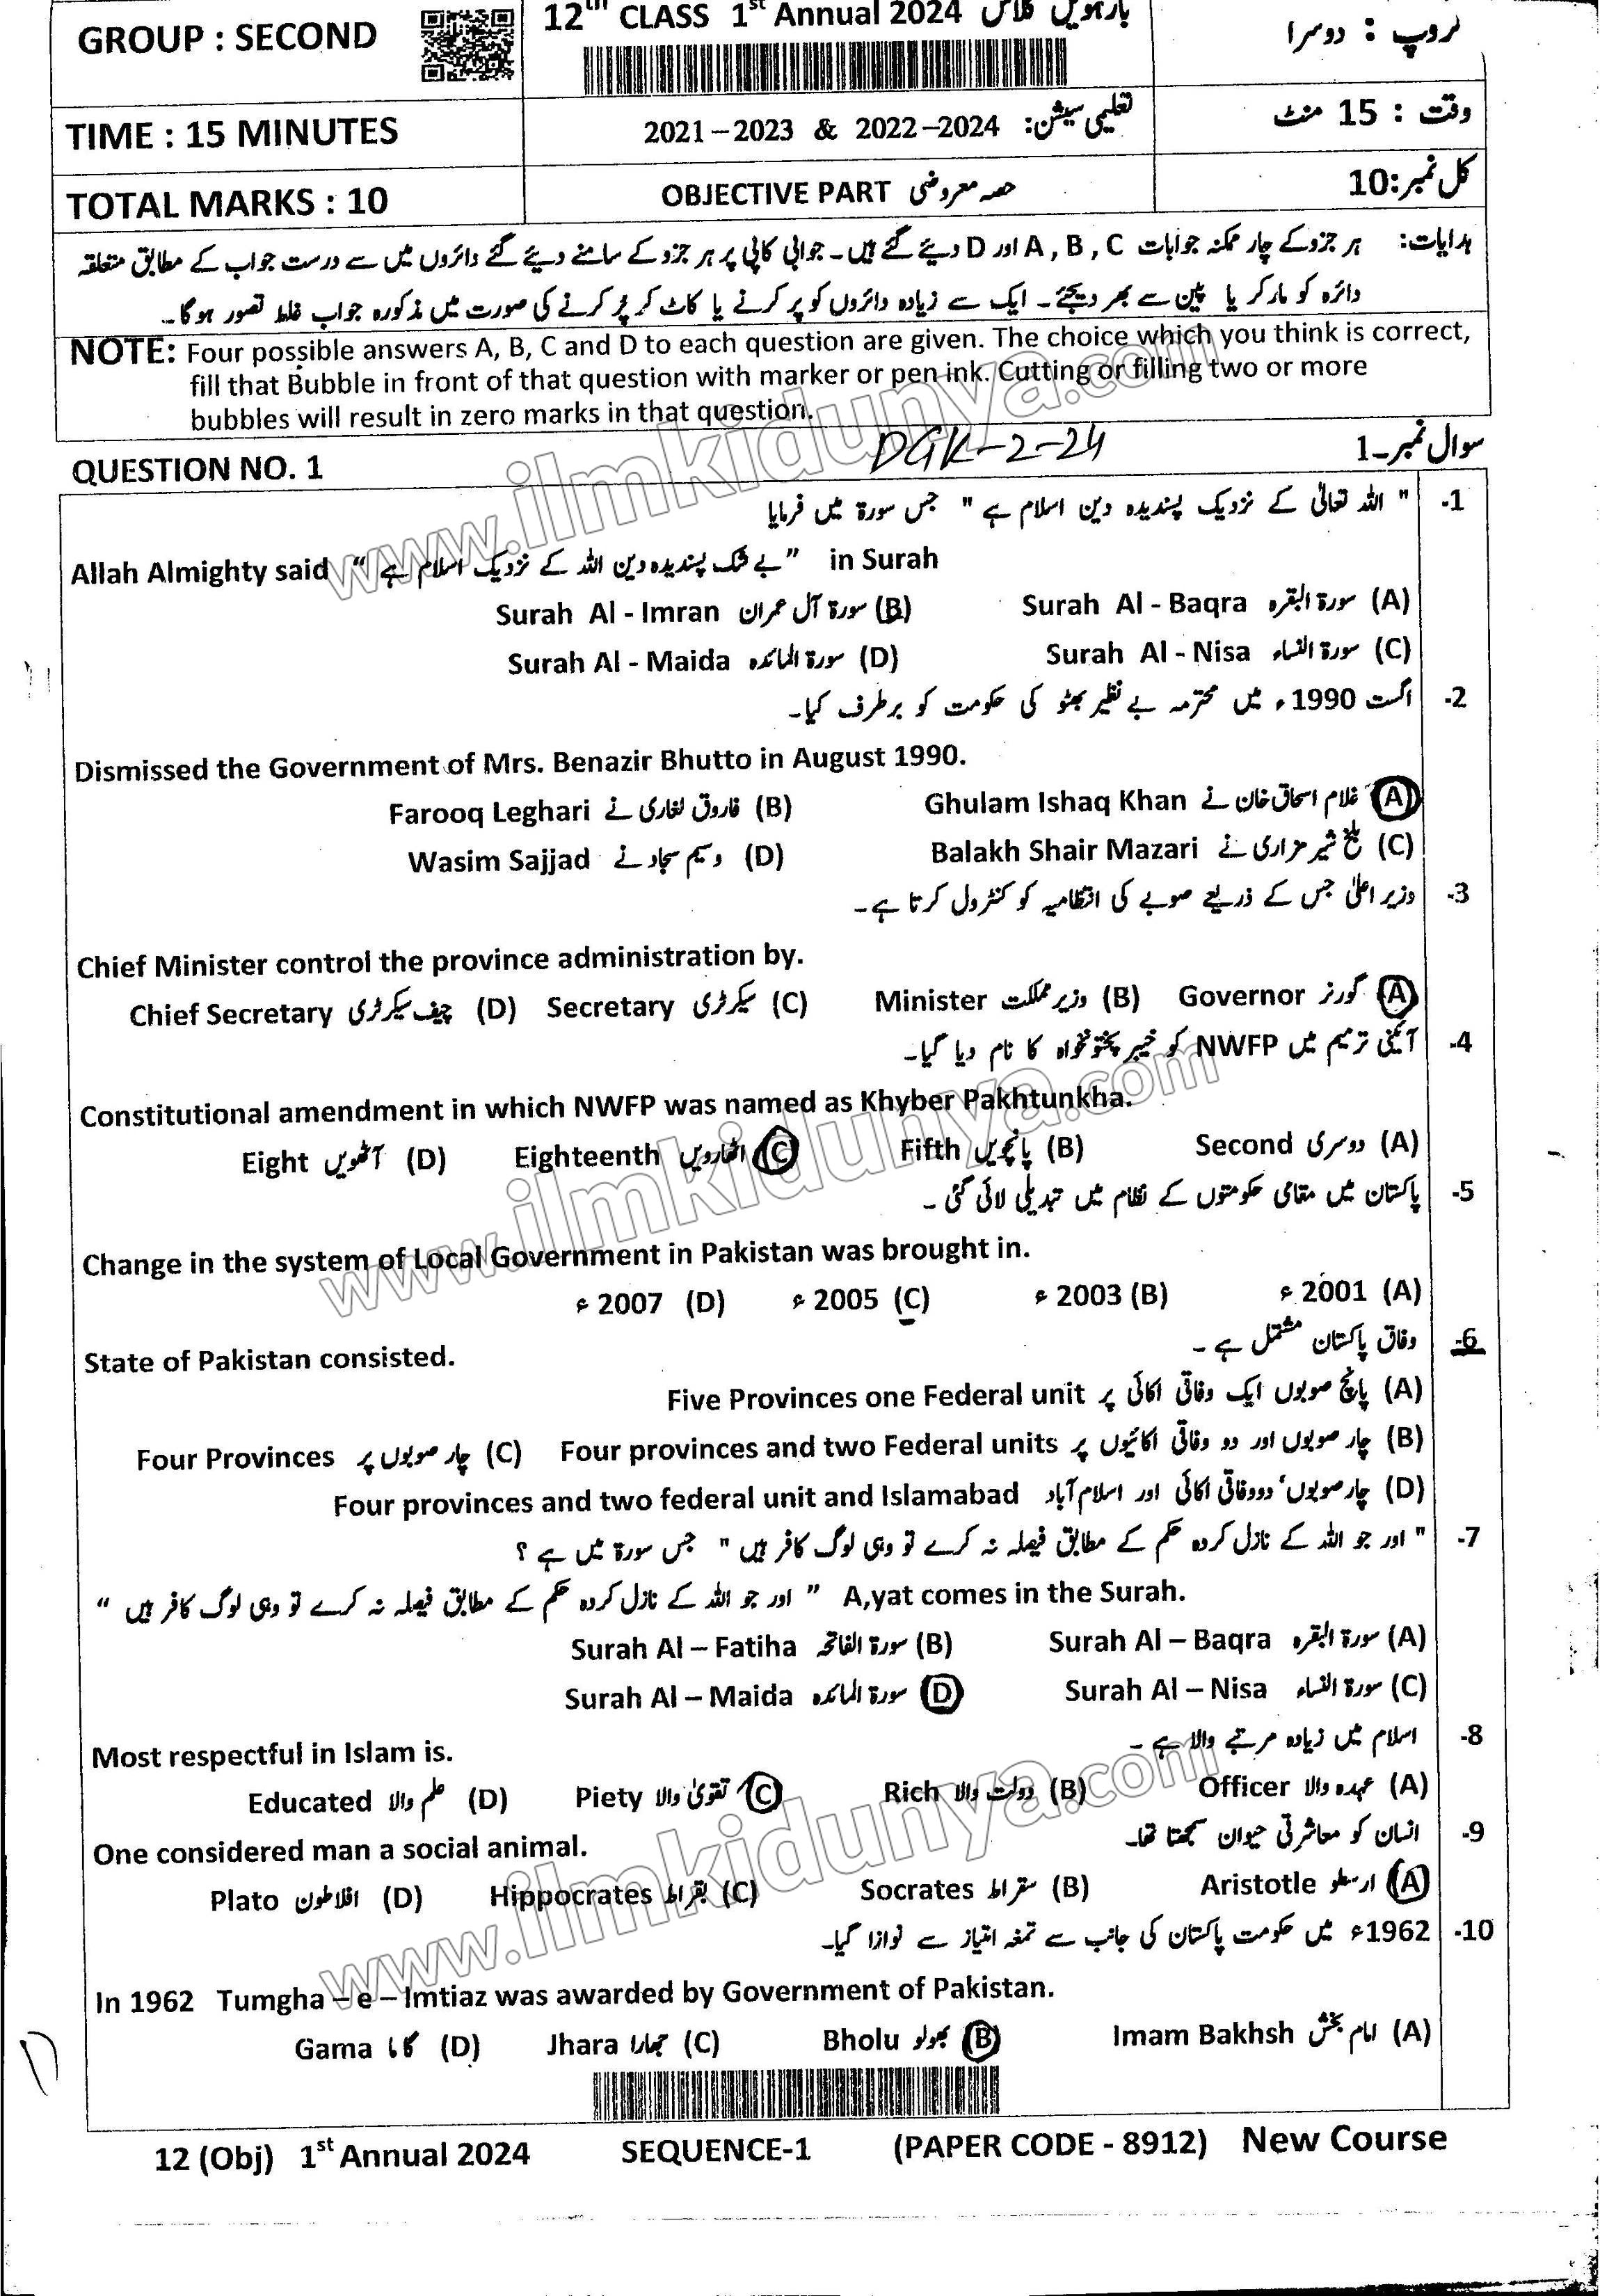 GROUP : SECOND
12th CLASS 1st Annual 2024 بارہویں کلاس
گروپ : دوسرا
TIME : 15 MINUTES
تعلیمی سیشن: 2021–2023 & 2022–2024
وقت : 15 منٹ
TOTAL MARKS : 10
OBJECTIVE PART حصہ معروضی
کل نمبر:10
ہدایات: ہر جزو کے چار ممکنہ جوابات A , B , C اور D دیئے گئے ہیں۔ جوابی کاپی پر ہر جزو کے سامنے دیئے گئے دائروں میں سے درست جواب کے مطابق متعلقہ
دائرہ کو مارکر یا پین سے بھر دیجئے۔ ایک سے زیادہ دائروں کو پر کرنے یا کاٹ کر پُر کرنے کی صورت میں مذکورہ جواب غلط تصور ہوگا۔
NOTE: Four possible answers A, B, C and D to each question are given. The choice which you think is correct,
fill that Bubble in front of that question with marker or pen ink. Cutting or filling two or more
bubbles will result in zero marks in that question.
DGK-2-24
QUESTION NO. 1 سوال نمبر۔1
1- " اللہ تعالیٰ کے نزدیک پسندیدہ دین اسلام ہے " جس سورۃ میں فرمایا
Allah Almighty said “ بے شک پسندیدہ دین اللہ کے نزدیک اسلام ہے ” in Surah
(A) سورۃ البقرہ Surah Al - Baqra (B) سورۃ آل عمران Surah Al - Imran
(C) سورۃ النساء Surah Al - Nisa (D) سورۃ المائدہ Surah Al - Maida
2- اگست 1990ء میں محترمہ بے نظیر بھٹو کی حکومت کو برطرف کیا۔
Dismissed the Government of Mrs. Benazir Bhutto in August 1990.
(A) غلام اسحاق خان نے Ghulam Ishaq Khan (B) فاروق لغاری نے Farooq Leghari
(C) بلخ شیر مزاری نے Balakh Shair Mazari (D) وسیم سجاد نے Wasim Sajjad
3- وزیر اعلیٰ جس کے ذریعے صوبے کی انتظامیہ کو کنٹرول کرتا ہے۔
Chief Minister control the province administration by.
(A) گورنر Governor (B) وزیر مملکت Minister (C) سیکرٹری Secretary (D) چیف سیکرٹری Chief Secretary
4- آئینی ترمیم میں NWFP کو خیبر پختونخواہ کا نام دیا گیا۔
Constitutional amendment in which NWFP was named as Khyber Pakhtunkha.
(A) دوسری Second (B) پانچویں Fifth (C) اٹھارویں Eighteenth (D) آٹھویں Eight
5- پاکستان میں مقامی حکومتوں کے نظام میں تبدیلی لائی گئی ۔
Change in the system of Local Government in Pakistan was brought in.
(A) 2001 ء (B) 2003 ء (C) 2005 ء (D) 2007 ء
6- وفاق پاکستان مشتمل ہے ۔
State of Pakistan consisted.
(A) پانچ صوبوں ایک وفاقی اکائی پر Five Provinces one Federal unit
(B) چار صوبوں اور دو وفاقی اکائیوں پر Four provinces and two Federal units (C) چار صوبوں پر Four Provinces
(D) چار صوبوں، دو وفاقی اکائی اور اسلام آباد Four provinces and two federal unit and Islamabad
7- " اور جو اللہ کے نازل کردہ حکم کے مطابق فیصلہ نہ کرے تو وہی لوگ کافر ہیں " جس سورۃ میں ہے ؟
“ اور جو اللہ کے نازل کردہ حکم کے مطابق فیصلہ نہ کرے تو وہی لوگ کافر ہیں ” A,yat comes in the Surah.
(A) سورۃ البقرہ Surah Al – Baqra (B) سورۃ الفاتحہ Surah Al – Fatiha
(C) سورۃ النساء Surah Al – Nisa (D) سورۃ المائدہ Surah Al – Maida
8- اسلام میں زیادہ مرتبے والا ہے ۔
Most respectful in Islam is.
(A) عہدہ والا Officer (B) دولت والا Rich (C) تقویٰ والا Piety (D) علم والا Educated
9- انسان کو معاشرتی حیوان سمجھتا تھا۔
One considered man a social animal.
(A) ارسطو Aristotle (B) سقراط Socrates (C) بقراط Hippocrates (D) افلاطون Plato
10- 1962ء میں حکومت پاکستان کی جانب سے تمغہ امتیاز سے نوازا گیا۔
In 1962 Tumgha – e – Imtiaz was awarded by Government of Pakistan.
(A) امام بخش Imam Bakhsh (B) بھولو Bholu (C) جھارا Jhara (D) گاما Gama
12 (Obj) 1st Annual 2024 SEQUENCE-1 (PAPER CODE - 8912) New Course
www.ilmkidunya.com
www.ilmkidunya.com
www.ilmkidunya.com